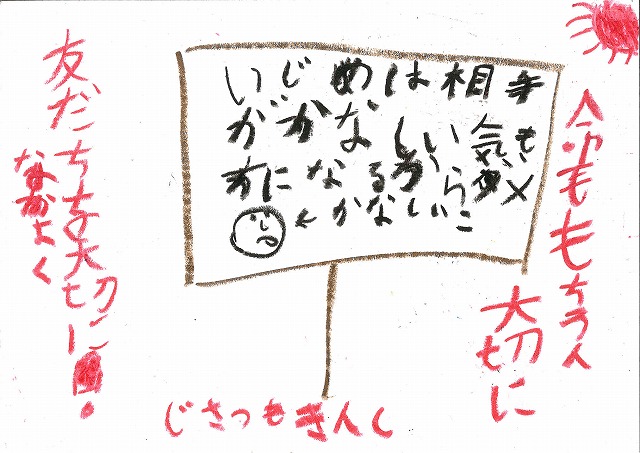 いじめは相手
がかなしい気も
方になるから×
←かなしいこ
命ももちろん
大切に
友だちを大切に
なかよく
じさつもきんし